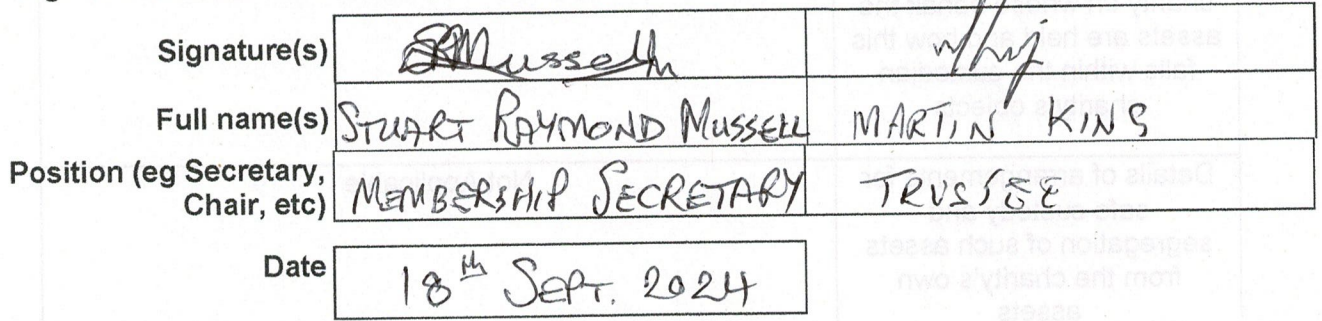 Signature(s) SRMussell
Full name(s) STUART RAYMOND MUSSELL MARTIN KING
Position (eg Secretary, MEMBERSHIP SECRETARY TRUSTEE
Chair, etc)
Date 18th SEPT. 2024